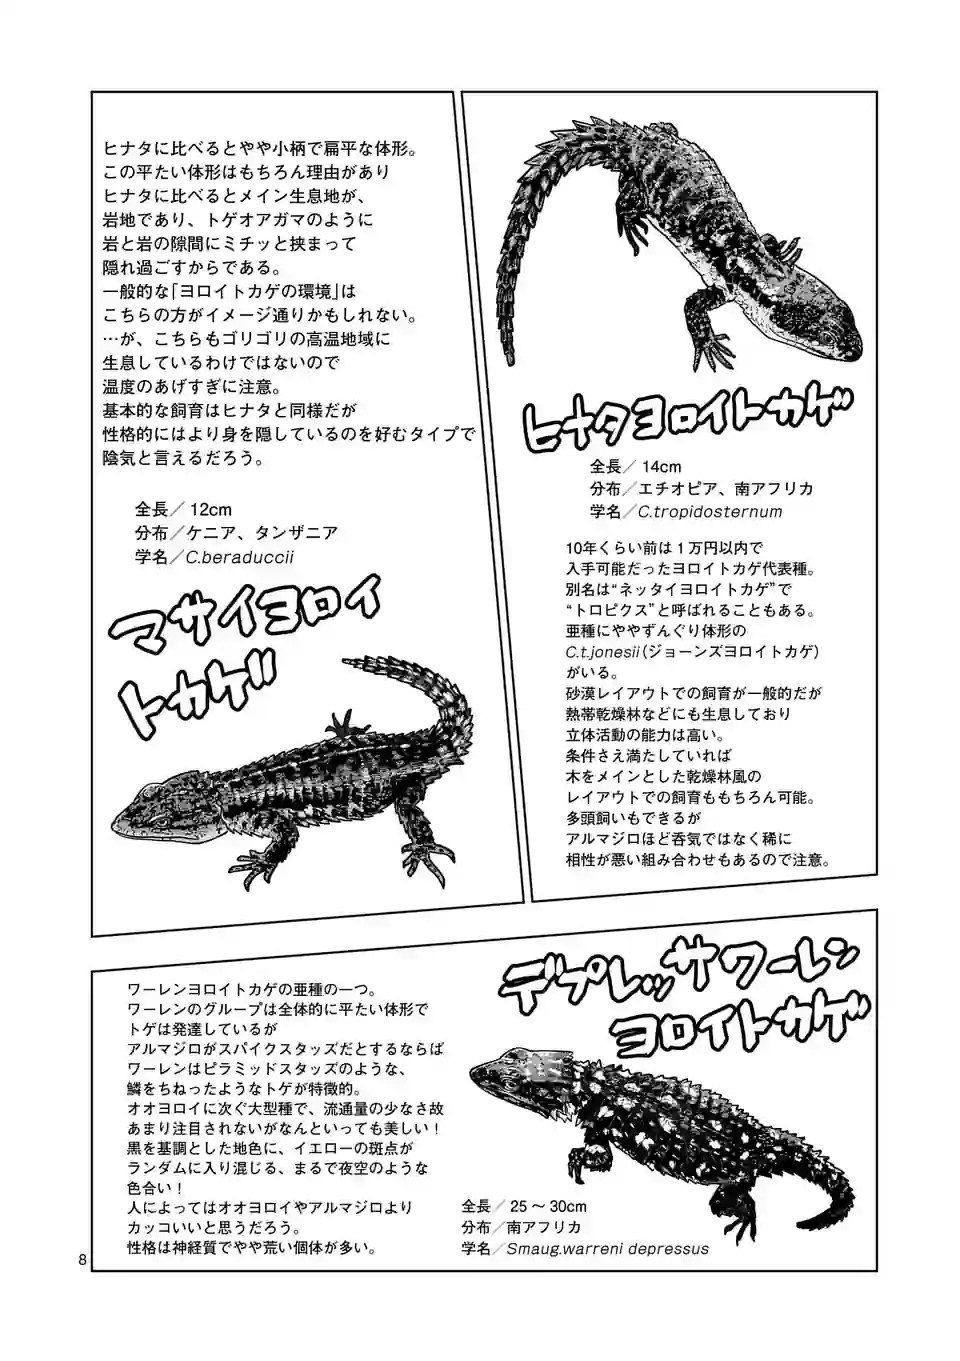 ヒナタヨロイトカゲ
全長／ 14cm
分布／エチオピア、南アフリカ
学名／C.tropidosternum
10年くらい前は１万円以内で
入手可能だったヨロイトカゲ代表種。
別名は“ネッタイヨロイトカゲ”で
“トロピクス”と呼ばれることもある。
亜種にややずんぐり体形の
C.t.jonesii（ジョーンズヨロイトカゲ）
がいる。
砂漠レイアウトでの飼育が一般的だが
熱帯乾燥林などにも生息しており
立体活動の能力は高い。
条件さえ満たしていれば
木をメインとした乾燥林風の
レイアウトでの飼育ももちろん可能。
多頭飼いもできるが
アルマジロほど呑気ではなく稀に
相性が悪い組み合わせもあるので注意。
ヒナタに比べるとやや小柄で扁平な体形。
この平たい体形はもちろん理由があり
ヒナタに比べるとメイン生息地が、
岩地であり、トゲオアガマのように
岩と岩の隙間にミチッと挟まって
隠れ過ごすからである。
一般的な「ヨロイトカゲの環境」は
こちらの方がイメージ通りかもしれない。
…が、こちらもゴリゴリの高温地域に
生息しているわけではないので
温度のあげすぎに注意。
基本的な飼育はヒナタと同様だが
性格的にはより身を隠しているのを好むタイプで
陰気と言えるだろう。
全長／ 12cm
分布／ケニア、タンザニア
学名／C.beraduccii
マサイヨロイ
トカゲ
デプレッサワーレン
ヨロイトカゲ
ワーレンヨロイトカゲの亜種の一つ。
ワーレンのグループは全体的に平たい体形で
トゲは発達しているが
アルマジロがスパイクスタッズだとするならば
ワーレンはピラミッドスタッズのような、
鱗をちねったようなトゲが特徴的。
オオヨロイに次ぐ大型種で、流通量の少なさ故
あまり注目されないがなんといっても美しい！
黒を基調とした地色に、イエローの斑点が
ランダムに入り混じる、まるで夜空のような
色合い！
人によってはオオヨロイやアルマジロより
カッコいいと思うだろう。
性格は神経質でやや荒い個体が多い。
全長／ 25～30cm
分布／南アフリカ
学名／Smaug.warreni depressus
8